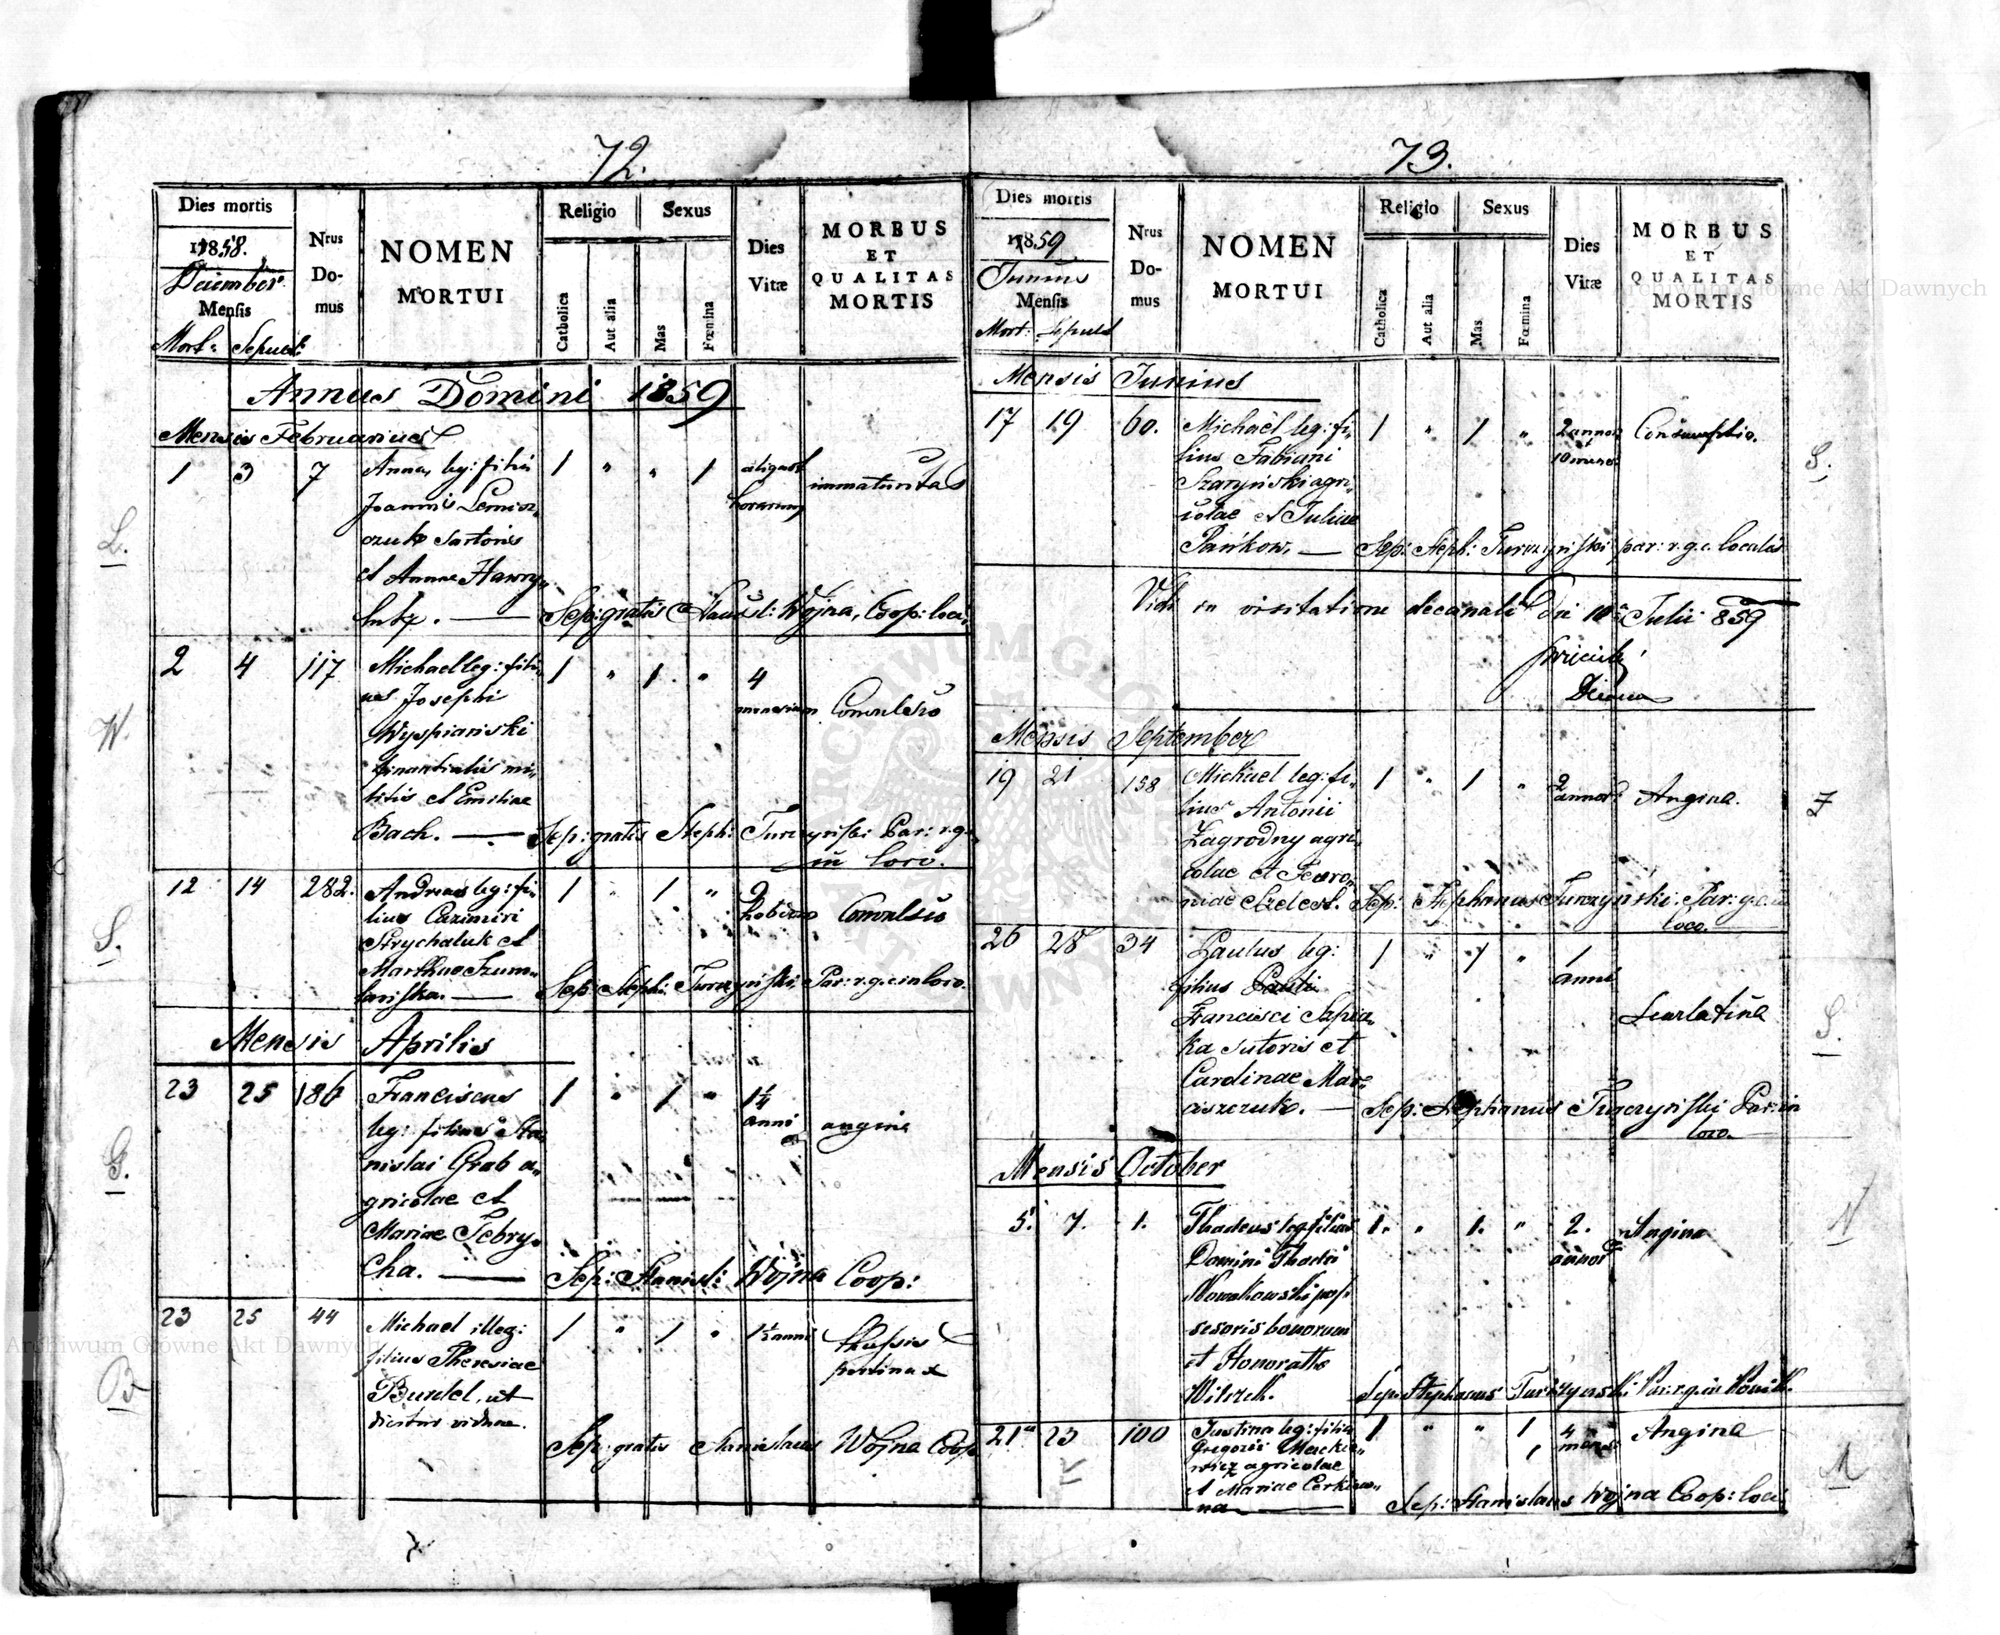 72.
Dies mortis
1858.
December
Mensis
Mort: Sepult:
Nrus
Do-
mus
NOMEN
MORTUI
Religio
Catholica
Aut alia
Sexus
Mas
Fœmina
Dies
Vitæ
MORBUS
ET
QUALITAS
MORTIS
Annus Domini 1859
Mensis Februarius
1 3 7 Anna, leg: filia 1 " " 1 aliquot immaturitas
Joannis horarum
sartoris
et Annae Hawry-
Sep: gratis Stanisl: Wojna, Coop: loci
2 4 117 Michael leg: fili- 1 " 1 " 4
us Josephi mensium Convulsio
Wyspiański
finantialis mi-
litis et Emiliae
Bach. — Sep: gratis Steph: Turczyński Par: r.g.
in loco.
12 14 282. Andreas leg: fi- 1 " 1 " 9
lius Cazimiri hebdo Convulsio
Strychaluk et
Marthae Szum-
lańska. — Sep: Steph: Turczyński, Par: r.g.c. in loco.
Mensis Aprilis
23 25 186 Franciscus 1 " 1 " 1¼
leg: filius Sta- anni angina
nislai Grab a-
gricolae et
Mariae Febry-
cha. — Sep: Stanisl: Wojna Coop:
23 25 44 Michael illeg: 1 " 1 " 1½ anni
filius Theresiae
Burdel, ut
dicitur viduae.
Sep: gratis Stanislaus Wojna Coop
L.
W.
S.
G.
B
73.
Dies mortis
1859
Junius
Mensis
Mort: Sepult
Nrus
Do-
mus
NOMEN
MORTUI
Religio
Catholica
Aut alia
Sexus
Mas
Fœmina
Dies
Vitæ
MORBUS
ET
QUALITAS
MORTIS
Mensis Junius
17 19 60. Michael leg: fi- 1 " 1 " 2 annor Consumptio.
lius Fabiani et 10 mens
Szaryński agri-
colae et Juliae
Pańkow. — Sep: Steph: Turczyński par: r.g.c. localis
Vidi in visitatione decanali Die 10a Julii 859
Mensis September
19 21 158 Michael leg: fi- 1 " 1 " 2 annor Angina.
lius Antonii
Zagrodny agri-
colae et Fewro-
niae Szelest. Sep: Stephanus Turczyński. Par: g.c. in
loco.
26 28 34 Paulus leg: 1 " 1 " 1
filius Pauli anni
Francisci Sapia-
ka sutoris et Scarlatina
Carolinae Mar-
ciszczuk. — Sep: Stephanus Turczyński Par: in
loco.
Mensis October
5. 7. 1. Thadeus leg filius 1. " 1. " 2. Angina
Domini Thadei annor
Nowakowski pos
sesoris bonorum
et Honoratte
Wilczek. Sep: Stephanus Turczyński Par: r.g. in
21 23 100 Justina leg: filia 1 " " 1 4 Angina
Gregorii Mackie- mens
wicz agricolae
et Mariae Cerkiew-
na — Sep: Stanislaus Wojna Coop: loci
S.
Z
S.
N
M
Archiwum Główne Akt Dawnych
Archiwum Główne Akt Dawnych
ARCHIWUM GŁÓWNE AKT DAWNYCH